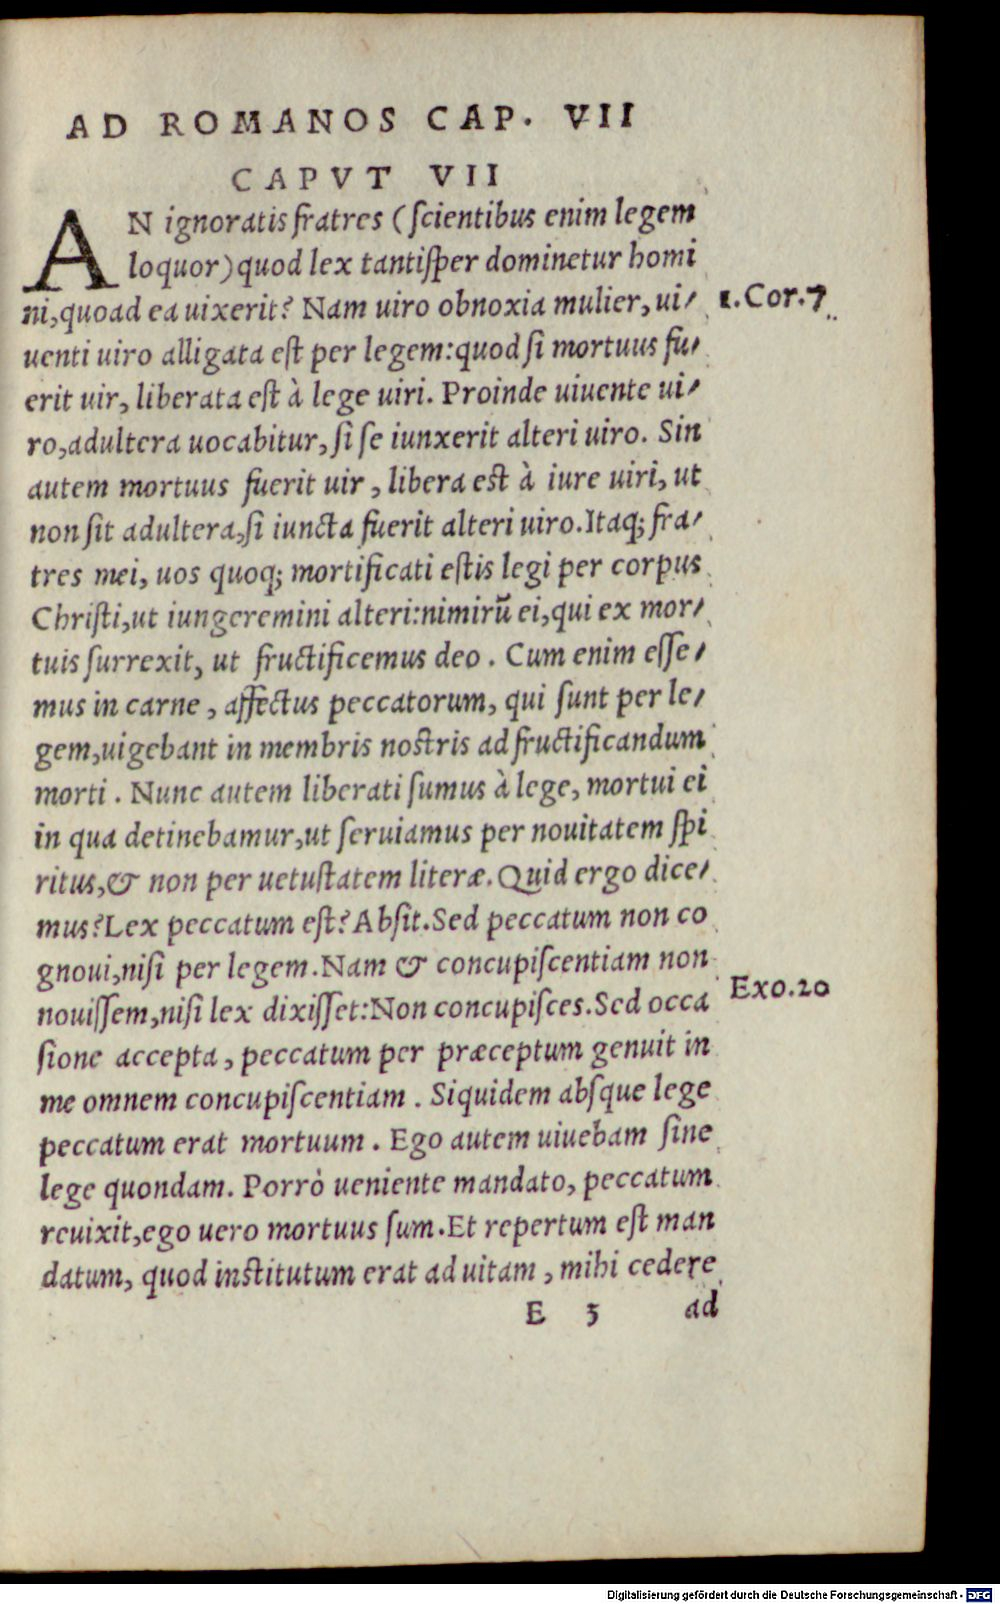 AD ROMANOS CAP. VII
CAPVT VII
AN ignoratis fratres (ſcientibus enim legem
loquor) quod lex tantiſper dominetur homi
ni, quoad ea uixerit? Nam uiro obnoxia mulier, ui-
1. Cor. 7
uenti uiro alligata eſt per legem: quod ſi mortuus fu-
erit uir, liberata eſt à lege uiri. Proinde uiuente ui-
ro, adultera uocabitur, ſi ſe iunxerit alteri uiro. Sin
autem mortuus fuerit uir, libera eſt à iure uiri, ut
non ſit adultera, ſi iuncta fuerit alteri uiro. Itaq; fra-
tres mei, uos quoq; mortificati eſtis legi per corpus
Chriſti, ut iungeremini alteri: nimirũ ei, qui ex mor-
tuis ſurrexit, ut fructificemus deo. Cum enim eſſe-
mus in carne, affectus peccatorum, qui ſunt per le-
gem, uigebant in membris noſtris ad fructificandum
morti. Nunc autem liberati ſumus à lege, mortui ei
in qua detinebamur, ut ſeruiamus per nouitatem ſpi
ritus, & non per uetuſtatem literæ. Quid ergo dice-
mus? Lex peccatum eſt? Abſit. Sed peccatum non co
gnoui, niſi per legem. Nam & concupiſcentiam non
nouiſſem, niſi lex dixiſſet: Non concupiſces. Sed occa
Exo. 20
ſione accepta, peccatum per præceptum genuit in
me omnem concupiſcentiam. Siquidem abſque lege
peccatum erat mortuum. Ego autem uiuebam ſine
lege quondam. Porrò ueniente mandato, peccatum
reuixit, ego uero mortuus ſum. Et repertum eſt man
datum, quod inſtitutum erat ad uitam, mihi cedere
E 3 ad
Digitalisierung gefördert durch die Deutsche Forschungsgemeinschaft - DFG